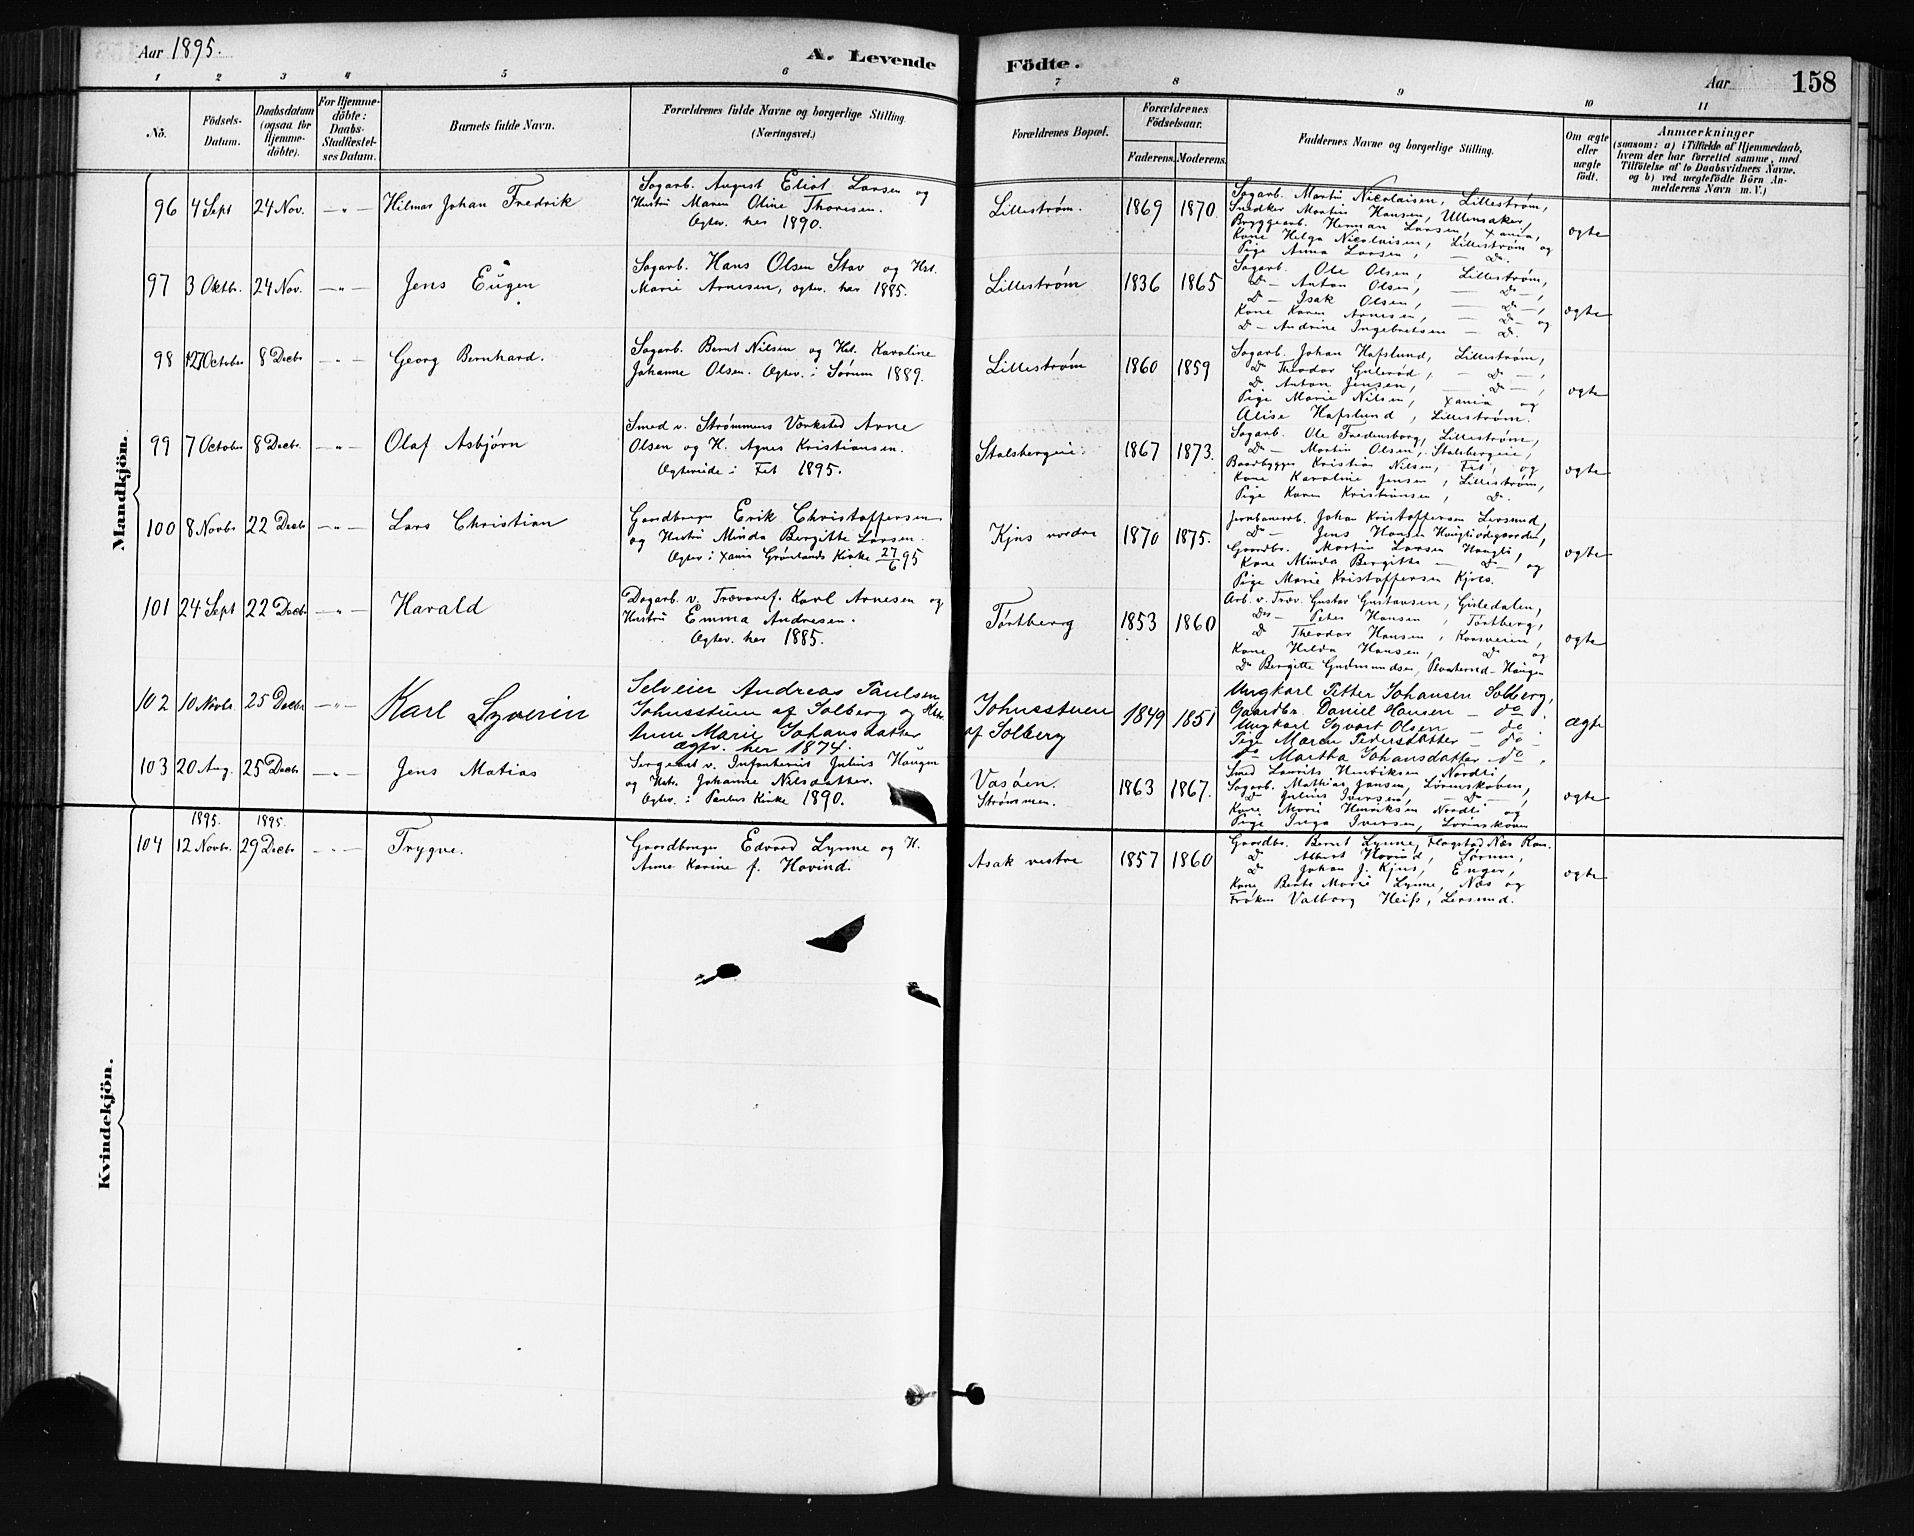 Aar 1895.
A. Levende Fødte.
Aar 158
1 2 3 4 5 6 7 8 9 10 11
No.
Födsels-Datum.
Daabsdatum (ogsaa for Hjemme-döbte).
For Hjemme-döbte: Daabs-Stadfæstel-ses Datum.
Barnets fulde Navn.
Forældrenes fulde Navne og borgerlige Stilling.
(Næringsvei.)
Forældrenes Bopæl.
Forældrenes Födselsaar.
Faderens. Moderens.
Faddernes Navne og borgerlige Stilling.
Om ægte eller uægte født.
Anmærkninger
(saasom: a) i Tilfælde af Hjemmedaab,
hvem der har forrettet samme, med
Tilföielse af to Daabsvidners Navne,
og b) ved uægtefödte Börn An-
melderens Navn m. V.)
Mandkjön.
96 4 Sept 24 Nov. — " — Hilmar Johan Fredrik
Sagarb. August Eliot Larsen og
Hustru Maren Oline Thoresen.
Egtev. her 1890.
Lillestrøm. 1869 1870.
Sagarb. Martin Nicolaisen, Lillestrøm,
Snedker Martin Hansen, Ullensaker,
Bryggearb. Herman Larsen, Xania,
Kone Helga Nicolaisen, Lillestrøm og
Pige Anna Larsen, — D.
egte
97 3 Oktbr. 24 Nov. — " — Jens Eugen
Sagarb. Hans Olsen Stav og Hst.
Marie Arnesen, egtev. her 1885.
Lillestrøm 1836 1865
Sagarb. Ole Olsen, Lillestrøm,
D — Anton Olsen, — D —,
D — Isak Olsen, — D —,
Kone Karen Arnesen, — D — og
D — Andrine Ingebretsen — D.
egte
98 12 October 8 Decbr — " — Georg Bernhard.
Sagarb. Bernt Nilsen og Hst. Karoline
Johanne Olsen. Egtev. i Sørum 1889.
Lillestrøm 1860 1859
Sagarb. Johan Hafslund, Lillestrøm,
D Theodor Gulerød, — D —,
D Anton Jensen, — D —,
Pige Marie Nilsen, Xania og
Alise Hafslund, Lillestrøm.
egte
99 7 October 8 Decbr. — " — Olaf Asbjørn
Smed v. Strømmens Værksted Arne
Olsen og H. Agnes Kristiansen.
Egteviede i Fet 1895.
Stalsbergeie. 1867 1873.
Sagarb. Ole Fredensborg, Lillestrøm,
D — Martin Olsen, Stalsbergeie,
Baadbygger Kristian Nilsen, Fet, og
Kone Karoline Jensen, Lillestrøm,
Pige Karen Kristiansen, D.
egte
100 8 Novbr 22 Decbr — " — Lars Christian
Gaardbruger Erik Christoffersen
og Hustru Minda Bergitte Larsen.
Egtev i Xania Grønlands Kirke 27/6 95
Kjus nordre 1870 1875.
Jernbanearb. Johan Kristoffersen Lersund,
D — Jens Hansen
Gaardbr. Martin Larsen Haugli,
Kone Minda Bergitte — D — og
Pige Marie Kristoffersen Kjus.
egte
101 24 Sept 22 Decbr — " — Harald
Dagarb. v. Trævaref. Karl Arnesen og
Hustru Emma Andresen.
Egtev. her 1885.
Tørtberg 1853 1860
Arb. v. Træv. Gustav Gustavsen, Gistedalen,
Do — Peter Hansen, Tørtberg,
D Theodor Hansen, Korsveien,
Kone Hilda Hansen, D og
Do Bergitte Gudmundsen, Haugen
egte
102 10 Novbr. 25 Decbr — " — Karl Syverin
Selveier Andreas Paulsen
Johnsstuen af Solberg og Hst.
Anne Marie Johansdatter
ægtv. her 1874.
Johnsstuen
af Solberg 1849 1851
Ungkarl Petter Johansen Solberg,
Gaardbr. Daniel Hansen — do.
Ungkarl Syvert Olsen — do
Pige Maren Pedersdatter — do —
do Martha Johansdatter do.
ægte
103 20 Aug. 25 Decbr — " — Jens Matias
Sergeant v. Infanteriet Julius Haugen
og Hst. Johanne Nilsdatter.
Egtev. i Paulus Kirke 1890.
Vasøen.
Strømmen. 1863 1867.
Smed Laurits Henriksen Nordli
Sagarb. Mathias Jansen, Lørenskoven,
D Julius Iversen, — D —,
Kone Marie Henriksen Nordli og
Pige Inga Iversen, Lørenskoven
egte
Kvindekjön.
1895. 1895.
104 12 Novbr. 29 Decbr — " — Trygve.
Gaardbruger Edvard Lynne og H.
Anne Karine f. Hovind.
Asak vestre 1857 1860
Gaardbr. Bernt Lynne, Flagstad Næs Rom.
D. Albert Hovind, Sørum,
D Johan J. Kjus, Enger,
Kone Berte Marie Lynne, Næs og
Frøken Valborg Heiss, Lersund.
egte